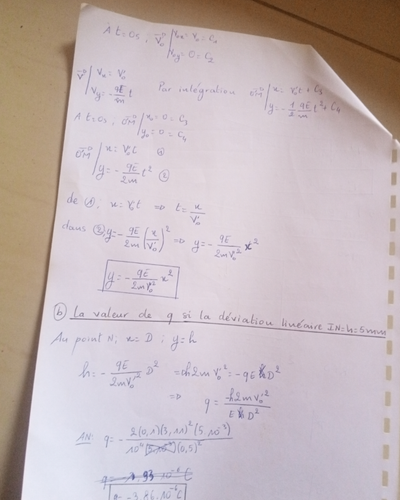 À t=0s, V₀ | V₀ₓ = V₀ = C₁
V₀y = 0 = C₂
V | Vₓ = V₀
Vy = -qE/m t
Par intégration OM | x = V₀t + C₃
y = -1/2 qE/m t² + C₄
À t=0s, OM | x₀ = 0 = C₃
y₀ = 0 = C₄
OM | x = V₀t ①
y = -qE/2m t² ②
de ①, x = V₀t => t = x/V₀
dans ② y = -qE/2m (x/V₀)² => y = -qE/2mV₀² x²
y = -qE/2mV₀² x²
b) La valeur de q si la déviation linéaire IN=h=5mm
Au point N, x = D ; y = h
h = -qE/2mV₀² D² => h2mV₀² = -qED²
=> q = -h2mV₀²/ED²
AN: q = - 2(0,1)(3,11)²(5.10⁻³)/10⁶(0,5)²
q = -3,86.10⁻⁶C